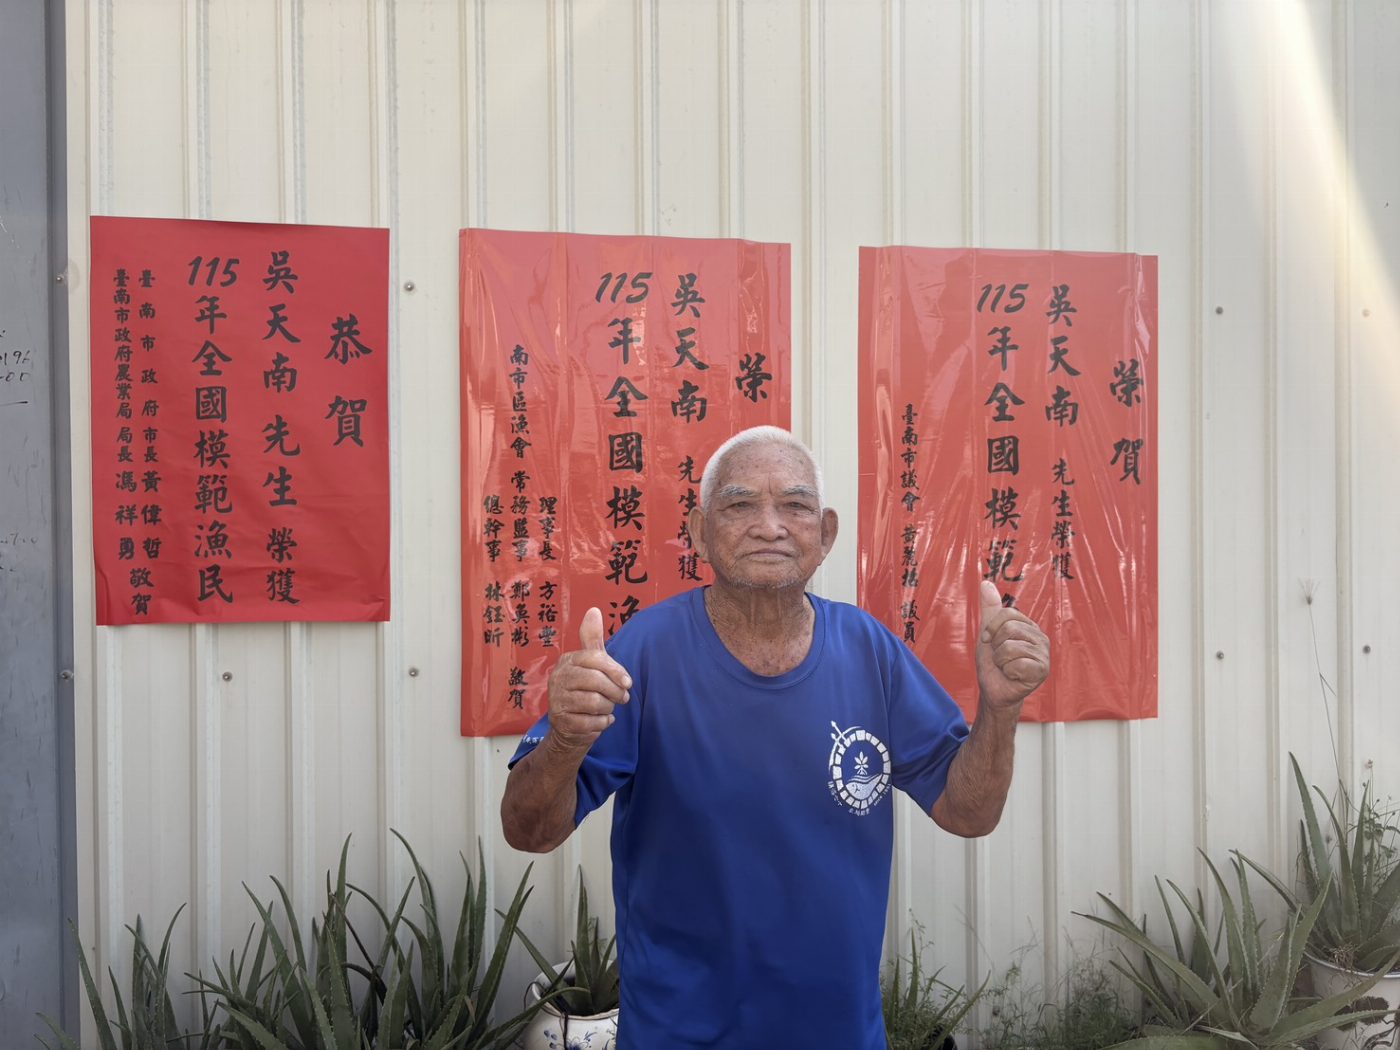 恭賀
吳天南 先生 榮獲
115年全國模範漁民
臺南市政府市長 黃偉哲
臺南市政府農業局局長 馮祥勇 敬賀
榮
吳天南 先生榮獲
115年全國模範漁
理事長 方裕豐
南市區漁會 常務監事 鄭英彬 敬賀
總幹事 林鈺昕
榮賀
吳天南 先生榮獲
115年全國模範
臺南市議會 議員